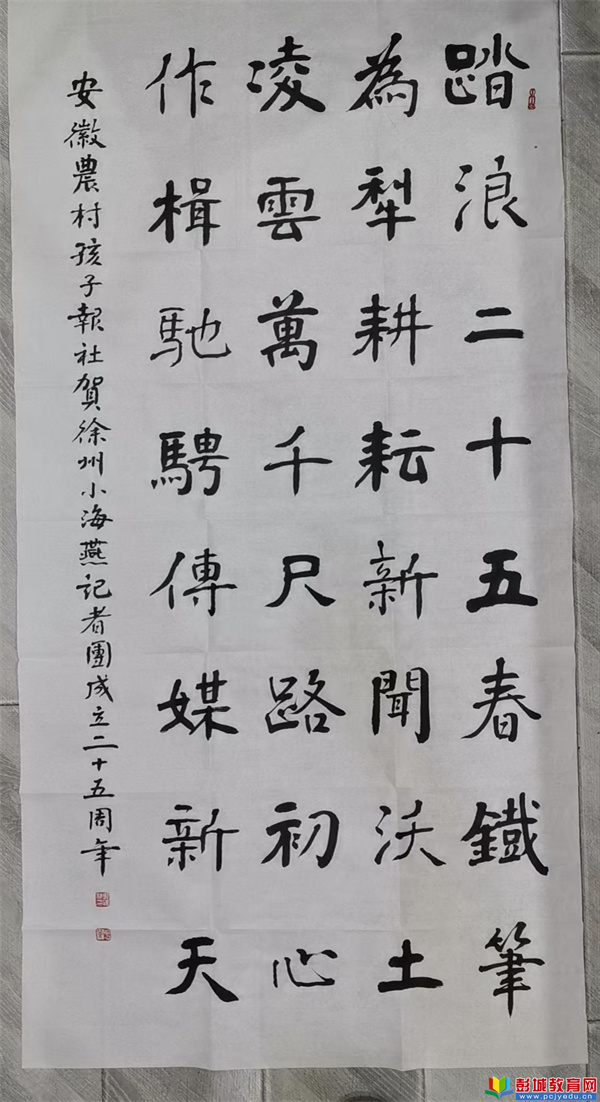 踏浪二十五春鐵筆
為犁耕耘新聞沃土
凌雲萬千尺路初心
作楫馳騁傳媒新天
安徽農村孩子報社賀徐州小海燕记者團成立二十五周年
彭城教育网
www.pcjyedu.cn